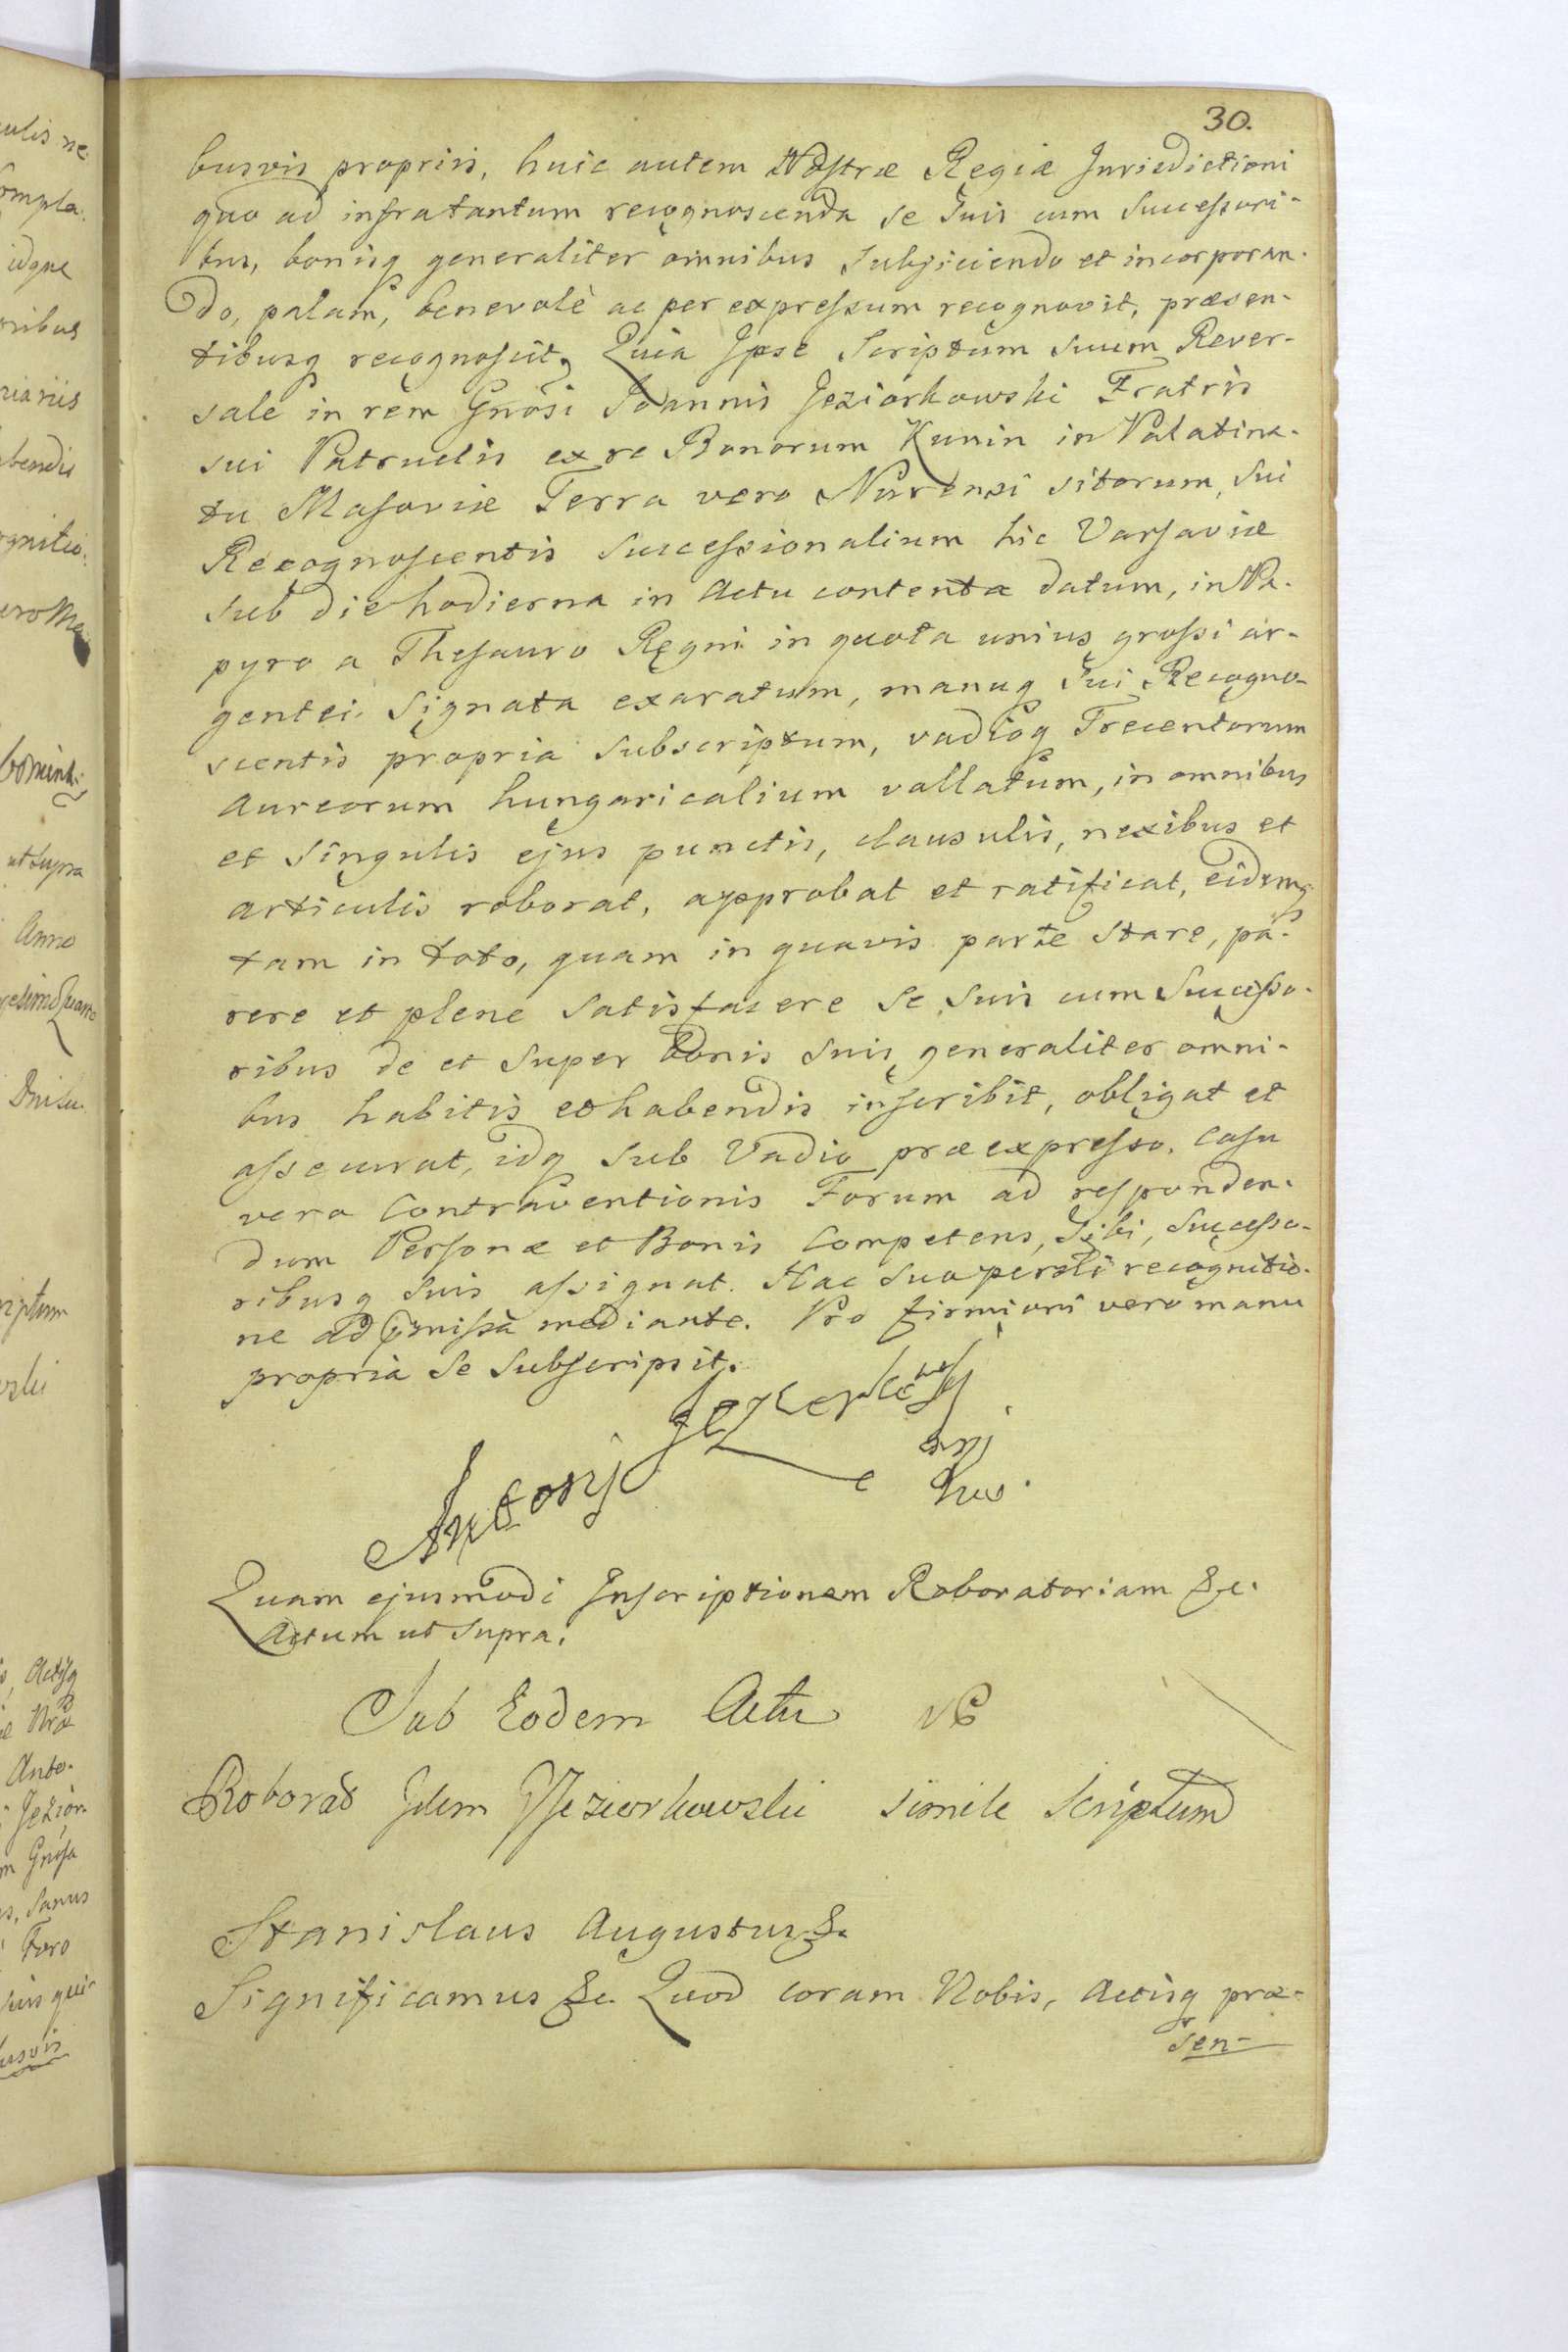 30.
busvis propriis, huic autem Nostræ Regiæ Jurisdictioni
quo ad infratantum recognoscenda se suis cum Successori-
bus, bonisq generaliter omnibus subjiciendo et incorporan-
do, palam, benevolè ac per expressum recognovit, præsen-
tibusq recognoscit, Quia Ipse Scriptum suum Rever-
sale in rem Gnosi Joannis Jeziorkowski Fratris
sui Patruelis ex re Bonorum Kunin in Palatina-
tu Masoviæ Terra vero Nurensi sitorum, sui
Recognoscentis successionalium hic Varsaviæ
sub die hodierna in Actu contenta datum, in Pa-
pyro a Thesauro Regni in quota unius grossi ar-
gentei signata exaratum, manuq sui Recogno-
scentis propria subscriptum, vadioq Trecentorum
Aureorum hungaricalium vallatum, in omnibus
et singulis ejus punctis, clausulis, nexibus et
articulis roborat, approbat et ratificat, eidemq
tam in toto, quam in quavis parte stare, pa-
rere et plene satisfacere se suis cum Successo-
ribus de et super bonis suis generaliter omni-
bus habitis et habendis inscribit, obligat et
assecurat, idq sub Vadio præexpresso. Casu
vero Contraventionis Forum ad responden-
dum Personæ et Bonis Competens, sibi, Successo-
ribusq suis assignat. Hac sua persli recognitio-
ne ad pmissa mediante. Pro firmiori vero manu
propria se subscripsit.
Antoni Jezierkowski
mp
Quam ejusmodi Inscriptionem Roboratoriam &c.
Actum ut supra.
Sub Eodem Actu
Roborat Idem Jeziorkowski simile Scriptum
Stanislaus Augustus &.
Significamus &c. Quod coram Nobis, Actisq præ-
sen-
culis ne
ompla.
idque
oribus
riariis
abendis
ognitio.
ut supra
Anno
Actisq
Anto-
Jezior-
s, sanus
Foro
usvis